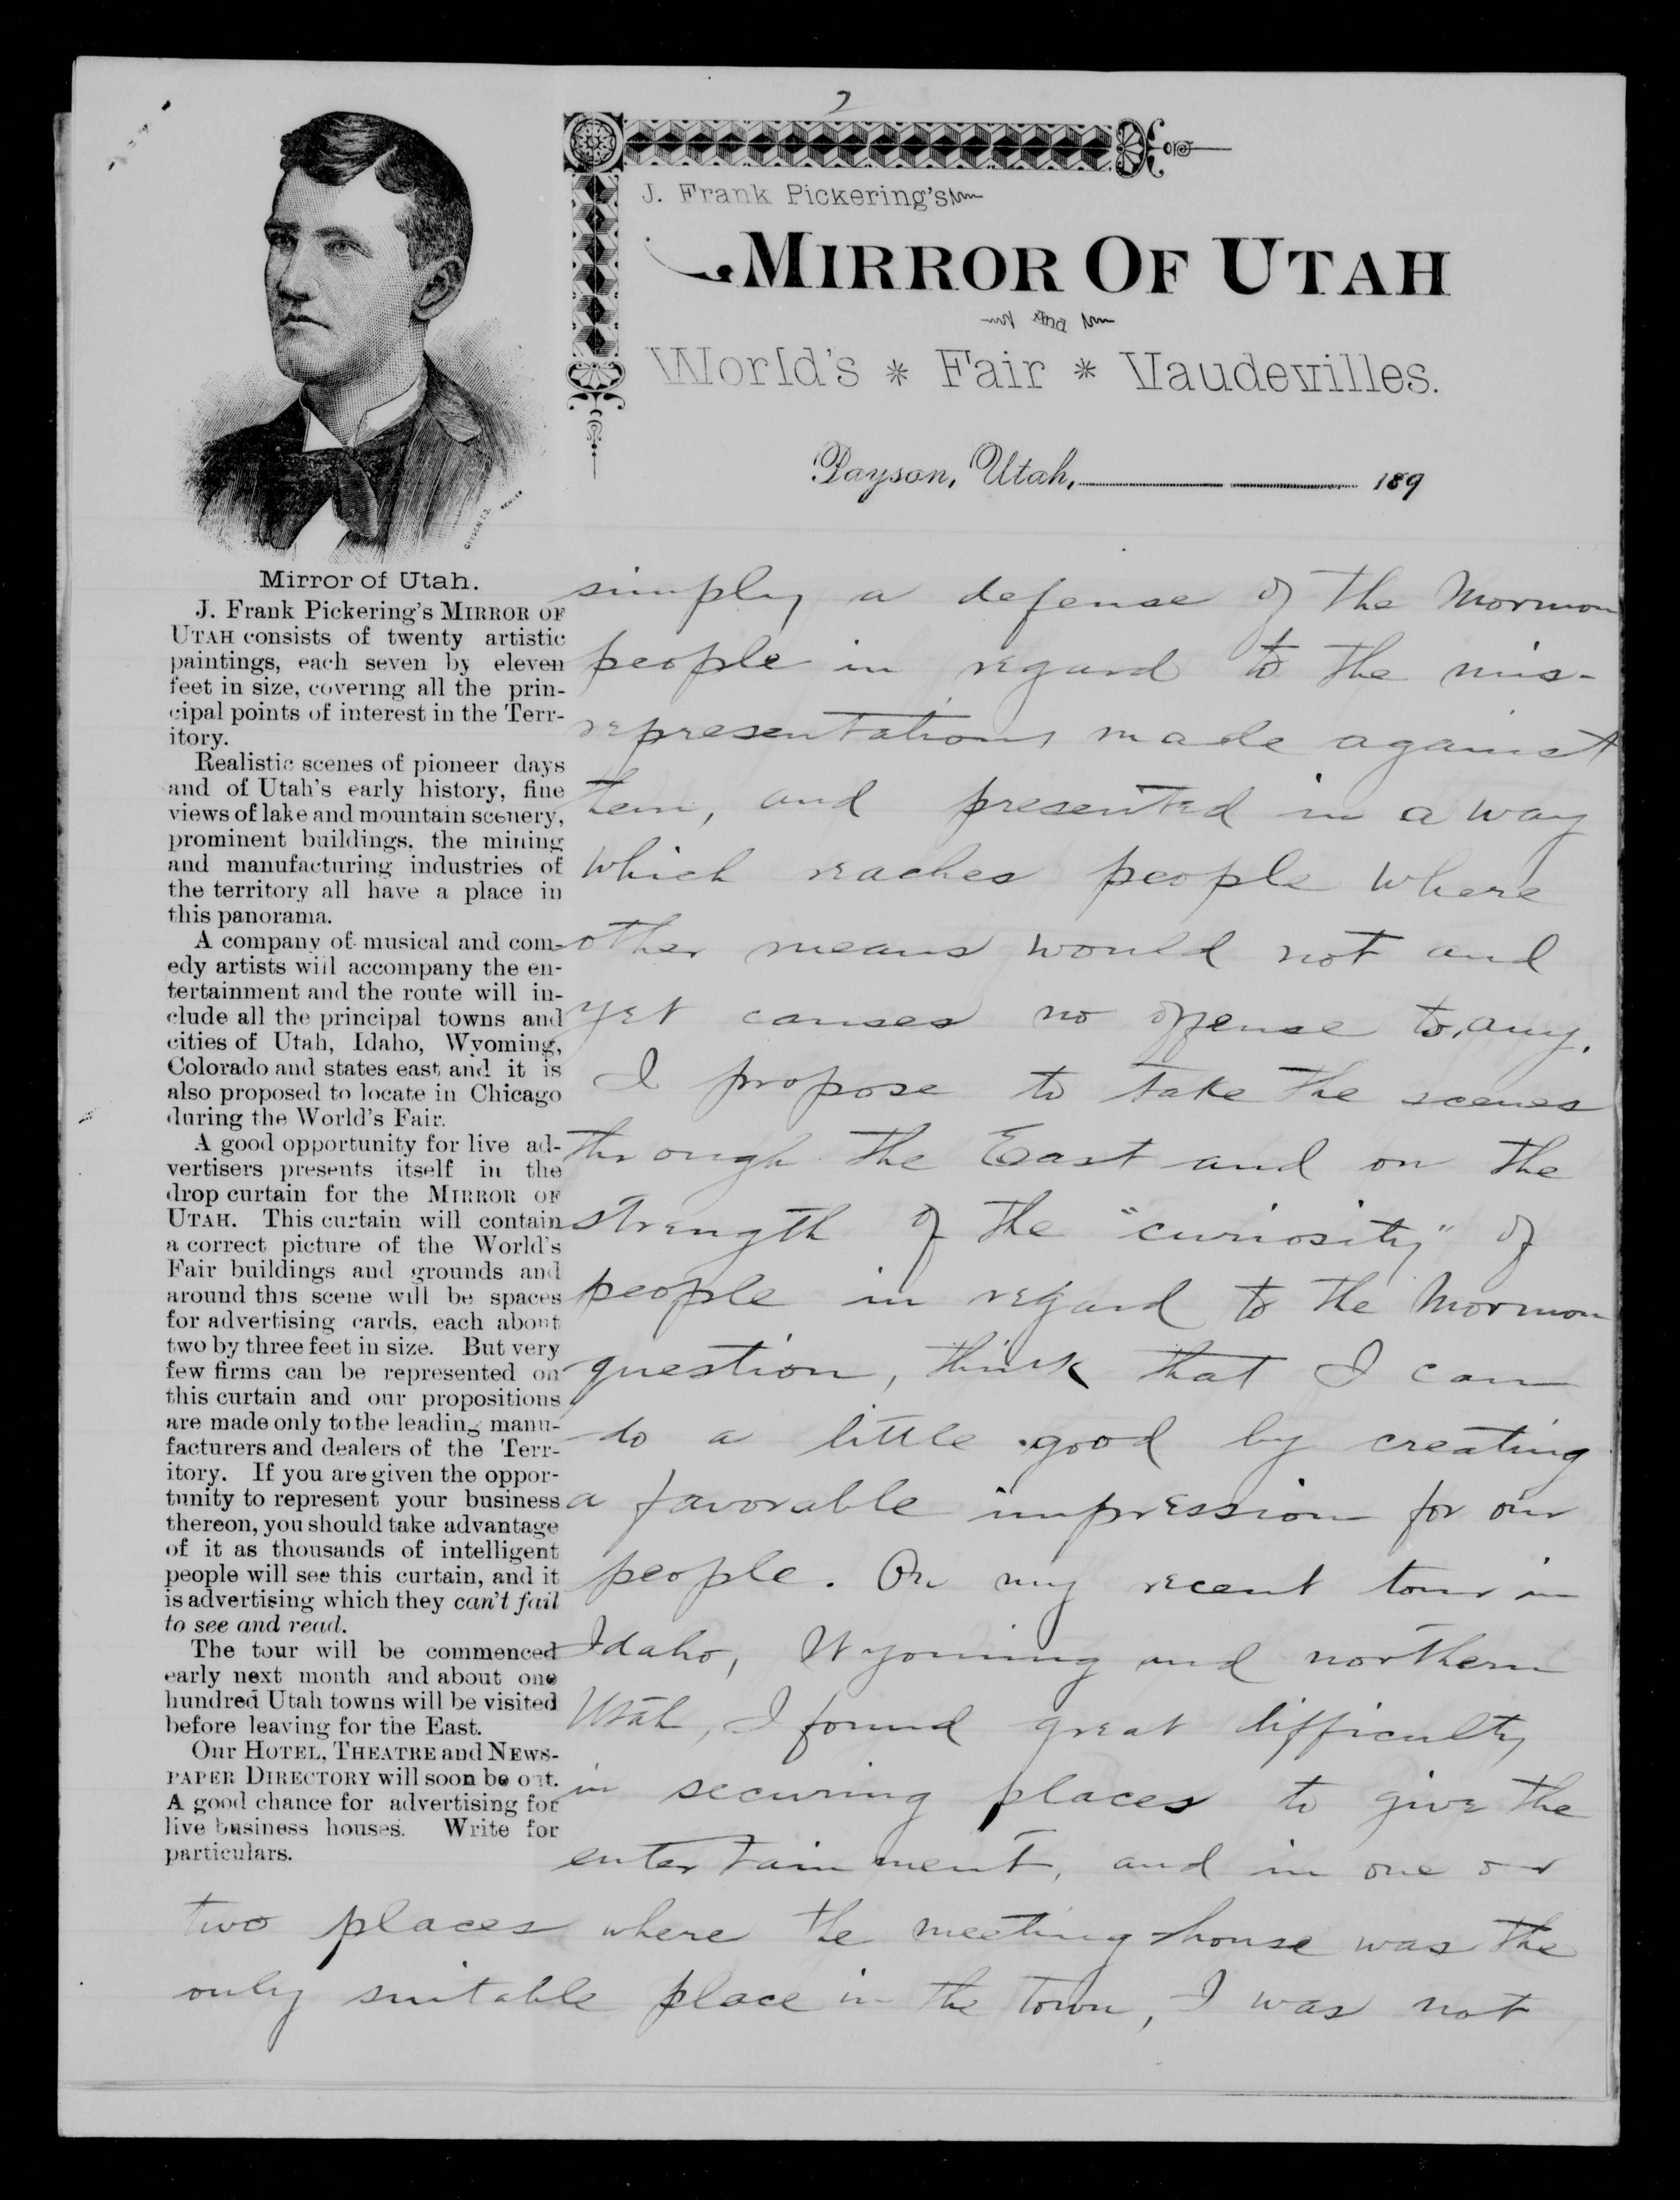 2
J. Frank Pickering's
MIRROR OF UTAH
and
World's * Fair * Vaudevilles.
Payson, Utah, 189
Mirror of Utah.
J. Frank Pickering's MIRROR OF
UTAH consists of twenty artistic
paintings, each seven by eleven
feet in size, covering all the prin-
cipal points of interest in the Terr-
itory.
Realistic scenes of pioneer days
and of Utah's early history, fine
views of lake and mountain scenery,
prominent buildings, the mining
and manufacturing industries of
the territory all have a place in
this panorama.
A company of musical and com-
edy artists will accompany the en-
tertainment and the route will in-
clude all the principal towns and
cities of Utah, Idaho, Wyoming,
Colorado and states east and it is
also proposed to locate in Chicago
during the World's Fair.
A good opportunity for live ad-
vertisers presents itself in the
drop curtain for the MIRROR OF
UTAH. This curtain will contain
a correct picture of the World's
Fair buildings and grounds and
around this scene will be spaces
for advertising cards, each about
two by three feet in size. But very
few firms can be represented on
this curtain and our propositions
are made only to the leading manu-
facturers and dealers of the Terr-
itory. If you are given the oppor-
tunity to represent your business
thereon, you should take advantage
of it as thousands of intelligent
people will see this curtain, and it
is advertising which they can't fail
to see and read.
The tour will be commenced
early next month and about one
hundred Utah towns will be visited
before leaving for the East.
Our HOTEL, THEATRE and NEWS-
PAPER DIRECTORY will soon be out.
A good chance for advertising for
live business houses. Write for
particulars.
simply a defense of the Mormon
people in regard to the mis-
representations made against
them, and presented in a way
which reaches people where
other means would not and
yet causes no offense to any.
I propose to take the scenes
through the East and on the
strength of the "curiosity" of
people in regard to the Mormon
question, think that I can
do a little good by creating
a favorable impression for our
people. On my recent tour in
Idaho, Wyoming and northern
Utah, I found great difficulty
in securing places to give the
entertainment, and in one or
two places where the meeting house was the
only suitable place in the town, I was not